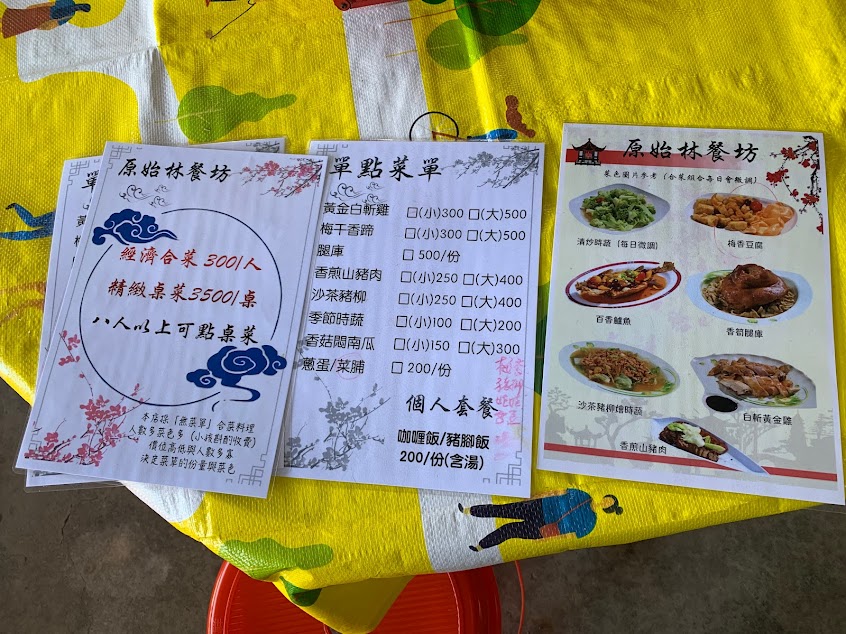 原始林餐坊
經濟合菜 300/1人
精緻桌菜3500/1桌
八人以上可點桌菜
本店採「無菜單」合菜料理
人數多菜色多(小孩斟酌收費)
價位高低與人數多寡
決定菜單的份量與菜色
單點菜單
黃金白斬雞 □(小)300 □(大)500
梅干香蹄 □(小)300 □(大)500
腿庫 □ 500/份
香煎山豬肉 □(小)250 □(大)400
沙茶豬柳 □(小)250 □(大)400
季節時蔬 □(小)100 □(大)200
香菇閩南瓜 □(小)150 □(大)300
蔥蛋/菜脯 □ 200/份
個人套餐
咖喱飯/豬腳飯
200/份(含湯)
原始林餐坊
菜色圖片參考(合菜組合每日會微調)
清炒時蔬(每日微調)
梅香豆腐
百香鱸魚
香筍腿庫
沙茶豬柳燴時蔬
白斬黃金雞
香煎山豬肉